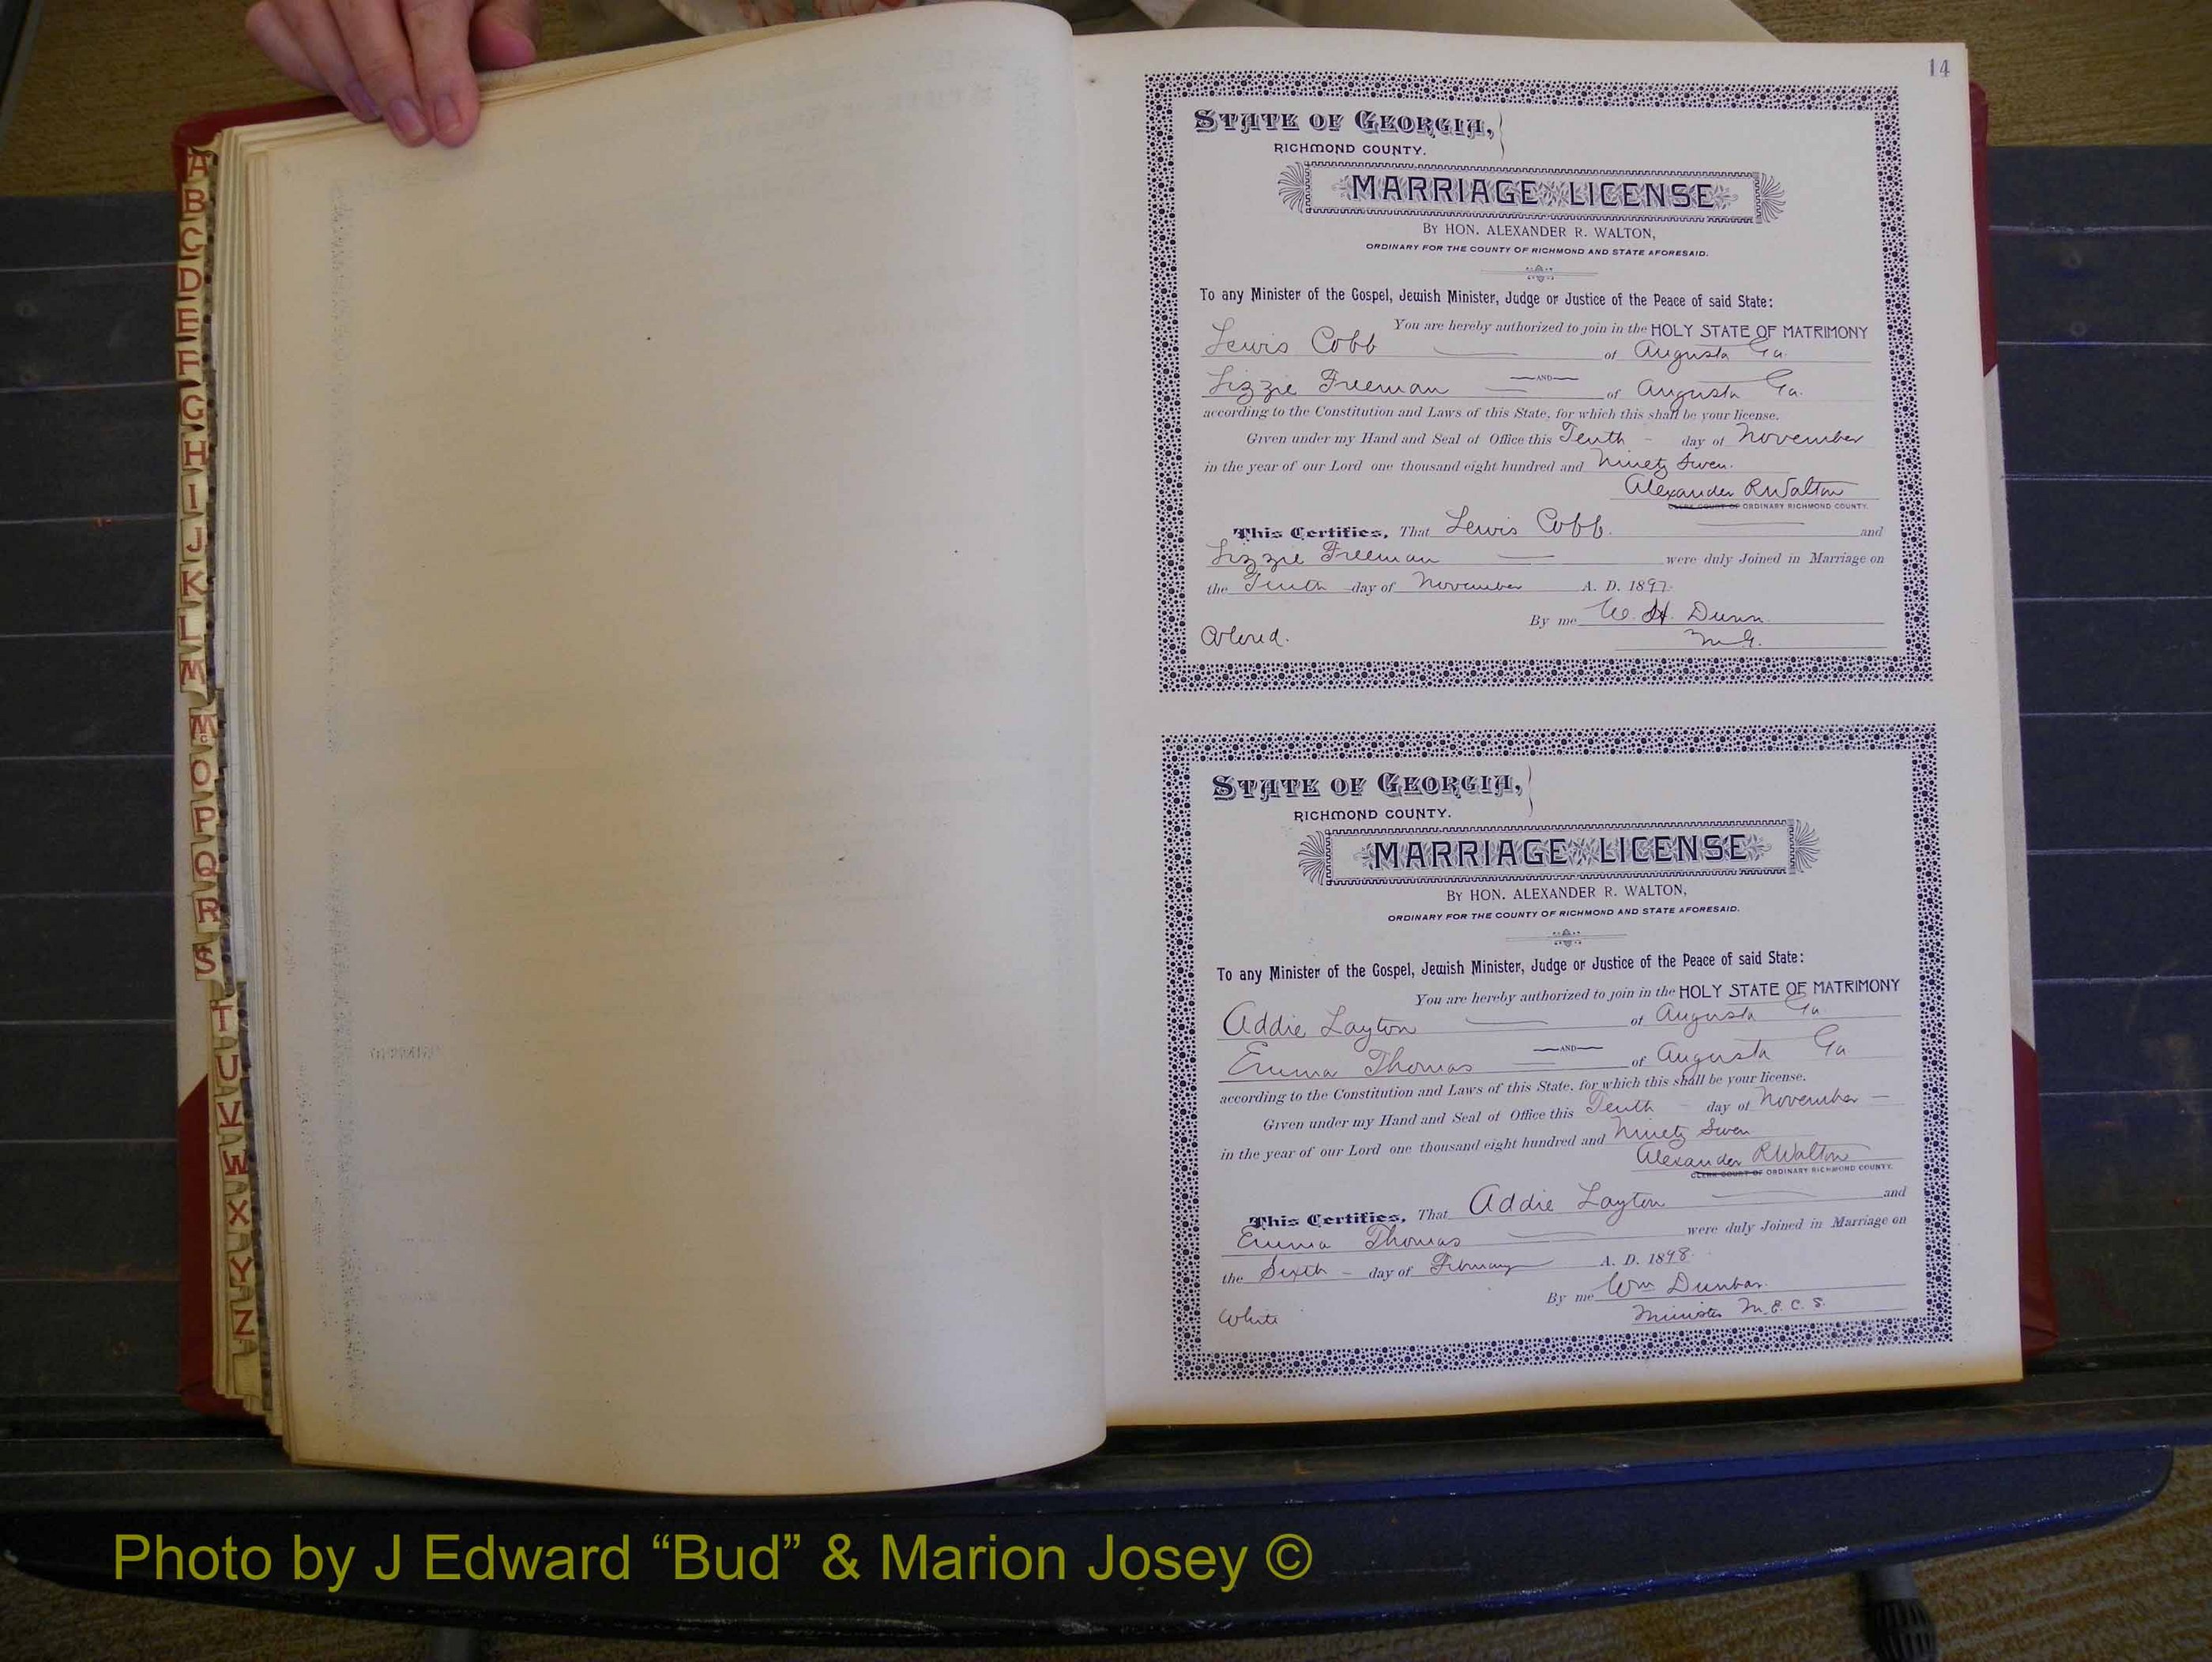 A
B
C
D
E
F
G
H
I
J
K
L
M
Mc
O
P
Q
R
S
T
U
V
W
X
Y
Z
14
STATE OF GEORGIA,
RICHMOND COUNTY.
MARRIAGE LICENSE
BY HON. ALEXANDER R. WALTON,
ORDINARY FOR THE COUNTY OF RICHMOND AND STATE AFORESAID.
To any Minister of the Gospel, Jewish Minister, Judge or Justice of the Peace of said State:
You are hereby authorized to join in the HOLY STATE OF MATRIMONY
Lewis Cobb of Augusta Ga.
AND
Lizzie Freeman of Augusta Ga.
according to the Constitution and Laws of this State, for which this shall be your license.
Given under my Hand and Seal of Office this Tenth day of November
in the year of our Lord one thousand eight hundred and Ninety Seven.
Alexander R Walton
CLERK COURT OF ORDINARY RICHMOND COUNTY.
This Certifies, That Lewis Cobb. and
Lizzie Freeman were duly Joined in Marriage on
the Tenth day of November A. D. 1897.
By me W. H. Dunn.
Colored. M.G.
STATE OF GEORGIA,
RICHMOND COUNTY.
MARRIAGE LICENSE
BY HON. ALEXANDER R. WALTON,
ORDINARY FOR THE COUNTY OF RICHMOND AND STATE AFORESAID.
To any Minister of the Gospel, Jewish Minister, Judge or Justice of the Peace of said State:
You are hereby authorized to join in the HOLY STATE OF MATRIMONY
Addie Layton of Augusta Ga.
AND
Emma Thomas of Augusta Ga
according to the Constitution and Laws of this State, for which this shall be your license.
Given under my Hand and Seal of Office this Tenth day of November
in the year of our Lord one thousand eight hundred and Ninety Seven
Alexander R Walton
CLERK COURT OF ORDINARY RICHMOND COUNTY.
This Certifies, That Addie Layton and
Emma Thomas were duly Joined in Marriage on
the Sixth day of February A. D. 1898.
By me Wm Dunbar.
White Minister M.E.C.S.
Photo by J Edward “Bud” & Marion Josey ©